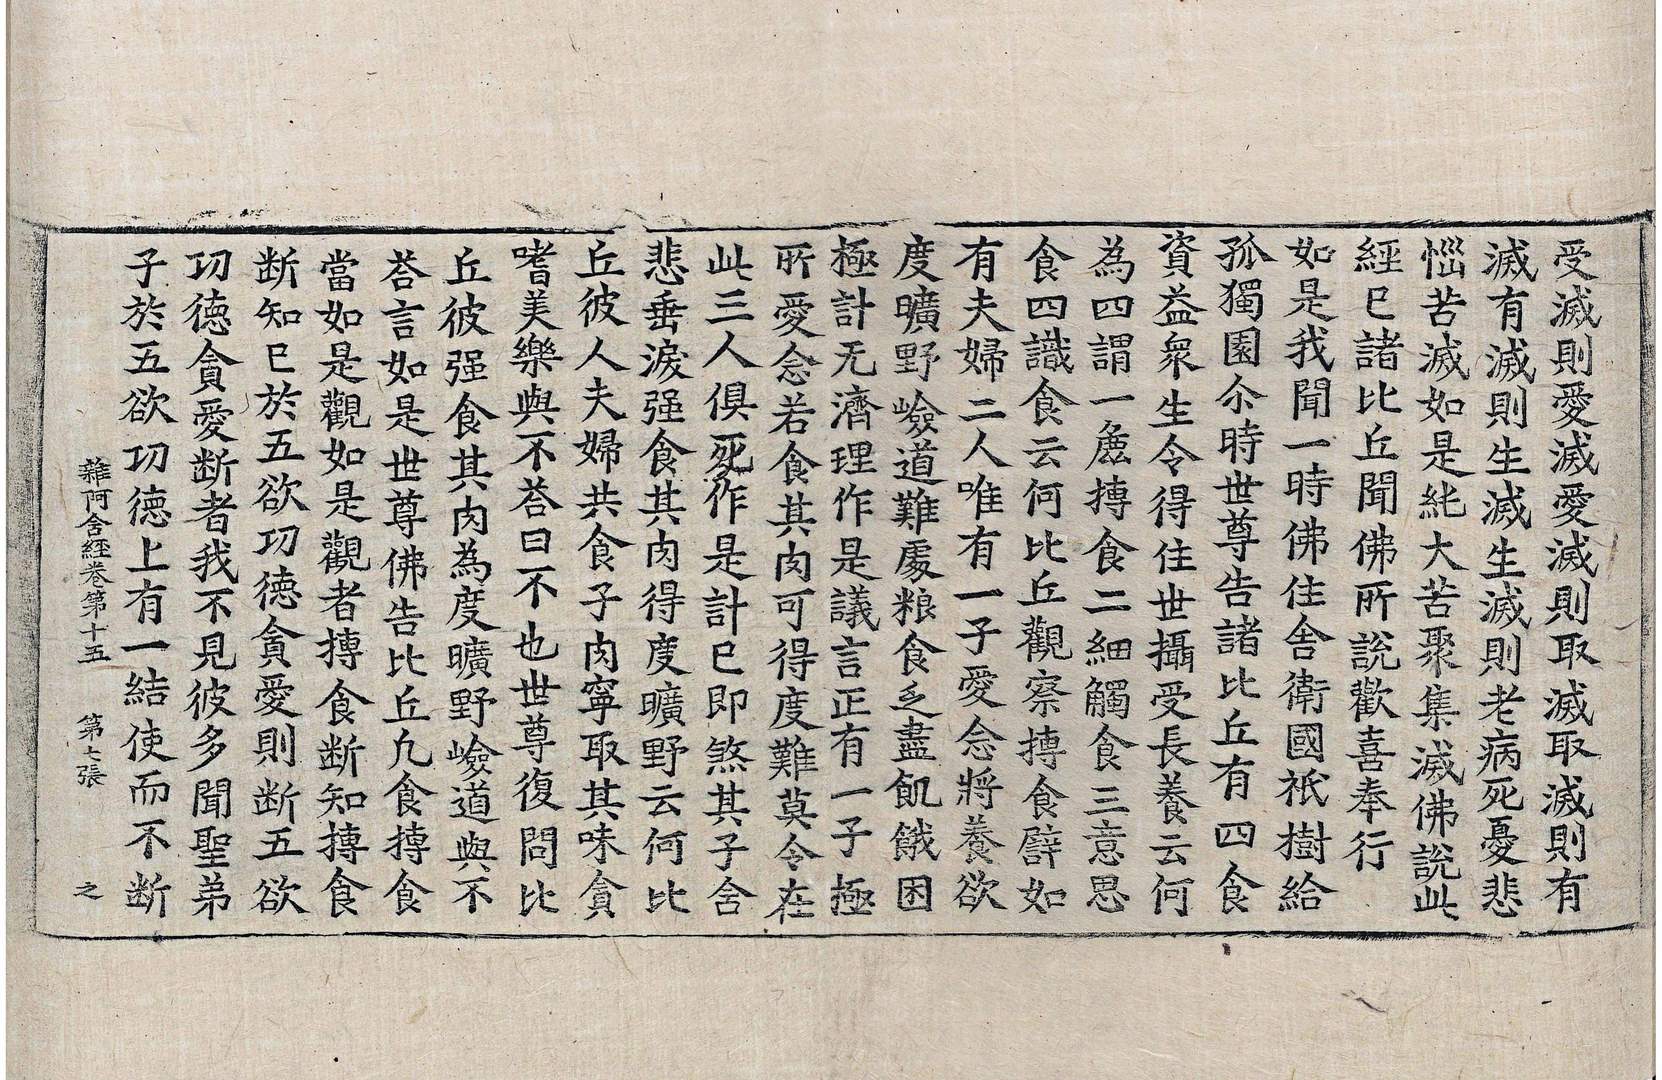 受滅則愛滅愛滅則取滅取滅則有
滅有滅則生滅生滅則老病死憂悲
惱苦滅如是純大苦聚集滅佛說此
經已諸比丘聞佛所說歡喜奉行
如是我聞一時佛住舍衛國祇樹給
孤獨園尒時世尊告諸比丘有四食
資益衆生令得住世攝受長養云何
為四謂一麁摶食二細觸食三意思
食四識食云何比丘觀察摶食譬如
有夫婦二人唯有一子愛念將養欲
度曠野嶮道難處粮食乏盡飢餓困
極計无濟理作是議言正有一子極
所愛念若食其肉可得度難莫令在
此三人俱死作是計已即煞其子含
悲垂淚强食其肉得度曠野云何比
丘彼人夫婦共食子肉寧取其味貪
嗜美樂與不荅曰不也世尊復問比
丘彼强食其肉為度曠野嶮道與不
荅言如是世尊佛告比丘凢食摶食
當如是觀如是觀者摶食断知摶食
断知已於五欲功德貪愛則断五欲
功德貪愛断者我不見彼多聞聖弟
子於五欲功德上有一結使而不断
雜阿含經卷第十五 第七張 之